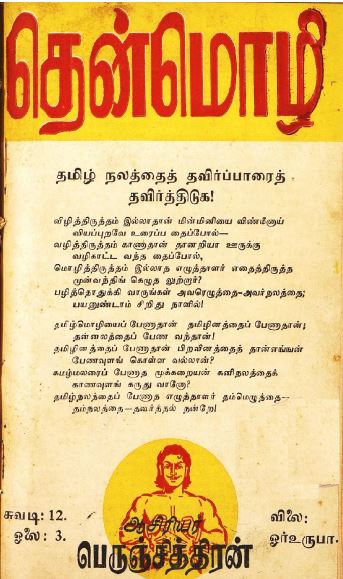 தென்மொழி
தமிழ் நலத்தைத் தவிர்ப்பாரைத்
தவிர்த்திடுக!
விழித்திருத்தம் இல்லாதான் மின்மினியை விண்மீனாய்
வியப்புறவே உரைப்ப தைப்போல்—
வழித்திருத்தம் காணாதான் தானறியா ஊருக்கு
வழிகாட்ட வந்த தைப்போல்,
மொழித்திருத்தம் இல்லாத எழுத்தாளர் எதைத்திருத்த
முன்வந்திங் கெழுத லுற்றார்?
பழித்தொதுக்கி வாருங்கள் அவரெழுத்தை-அவர்நலத்தை;
பயனுண்டாம் சிறிது நாளில்!
தமிழ்மொழியைப் பேணாதான் தமிழினத்தைப் பேணாதான்;
தன்னலத்தைப் பேண வந்தான்!
தமிழினத்தைப் பேணாதான் பிறவினத்தைத் தான்எங்ஙன்
பேணவுளங் கொள்ள வல்லான்?
கமழ்மலரைப் பேணாத மூக்கறையன் கனிநலத்தைக்
காணவுளங் கருது வானோ?
தமிழ்நலத்தைப் பேணாத எழுத்தாளர் தம்மெழுத்தை--
தம்நலத்தை—தவிர்த்தல் நன்றே!
சுவடி: 12.
ஓலை: 3.
ஆசிரியர்
பெருஞ்சித்திரன்
விலை:
ஓர்உருபா.